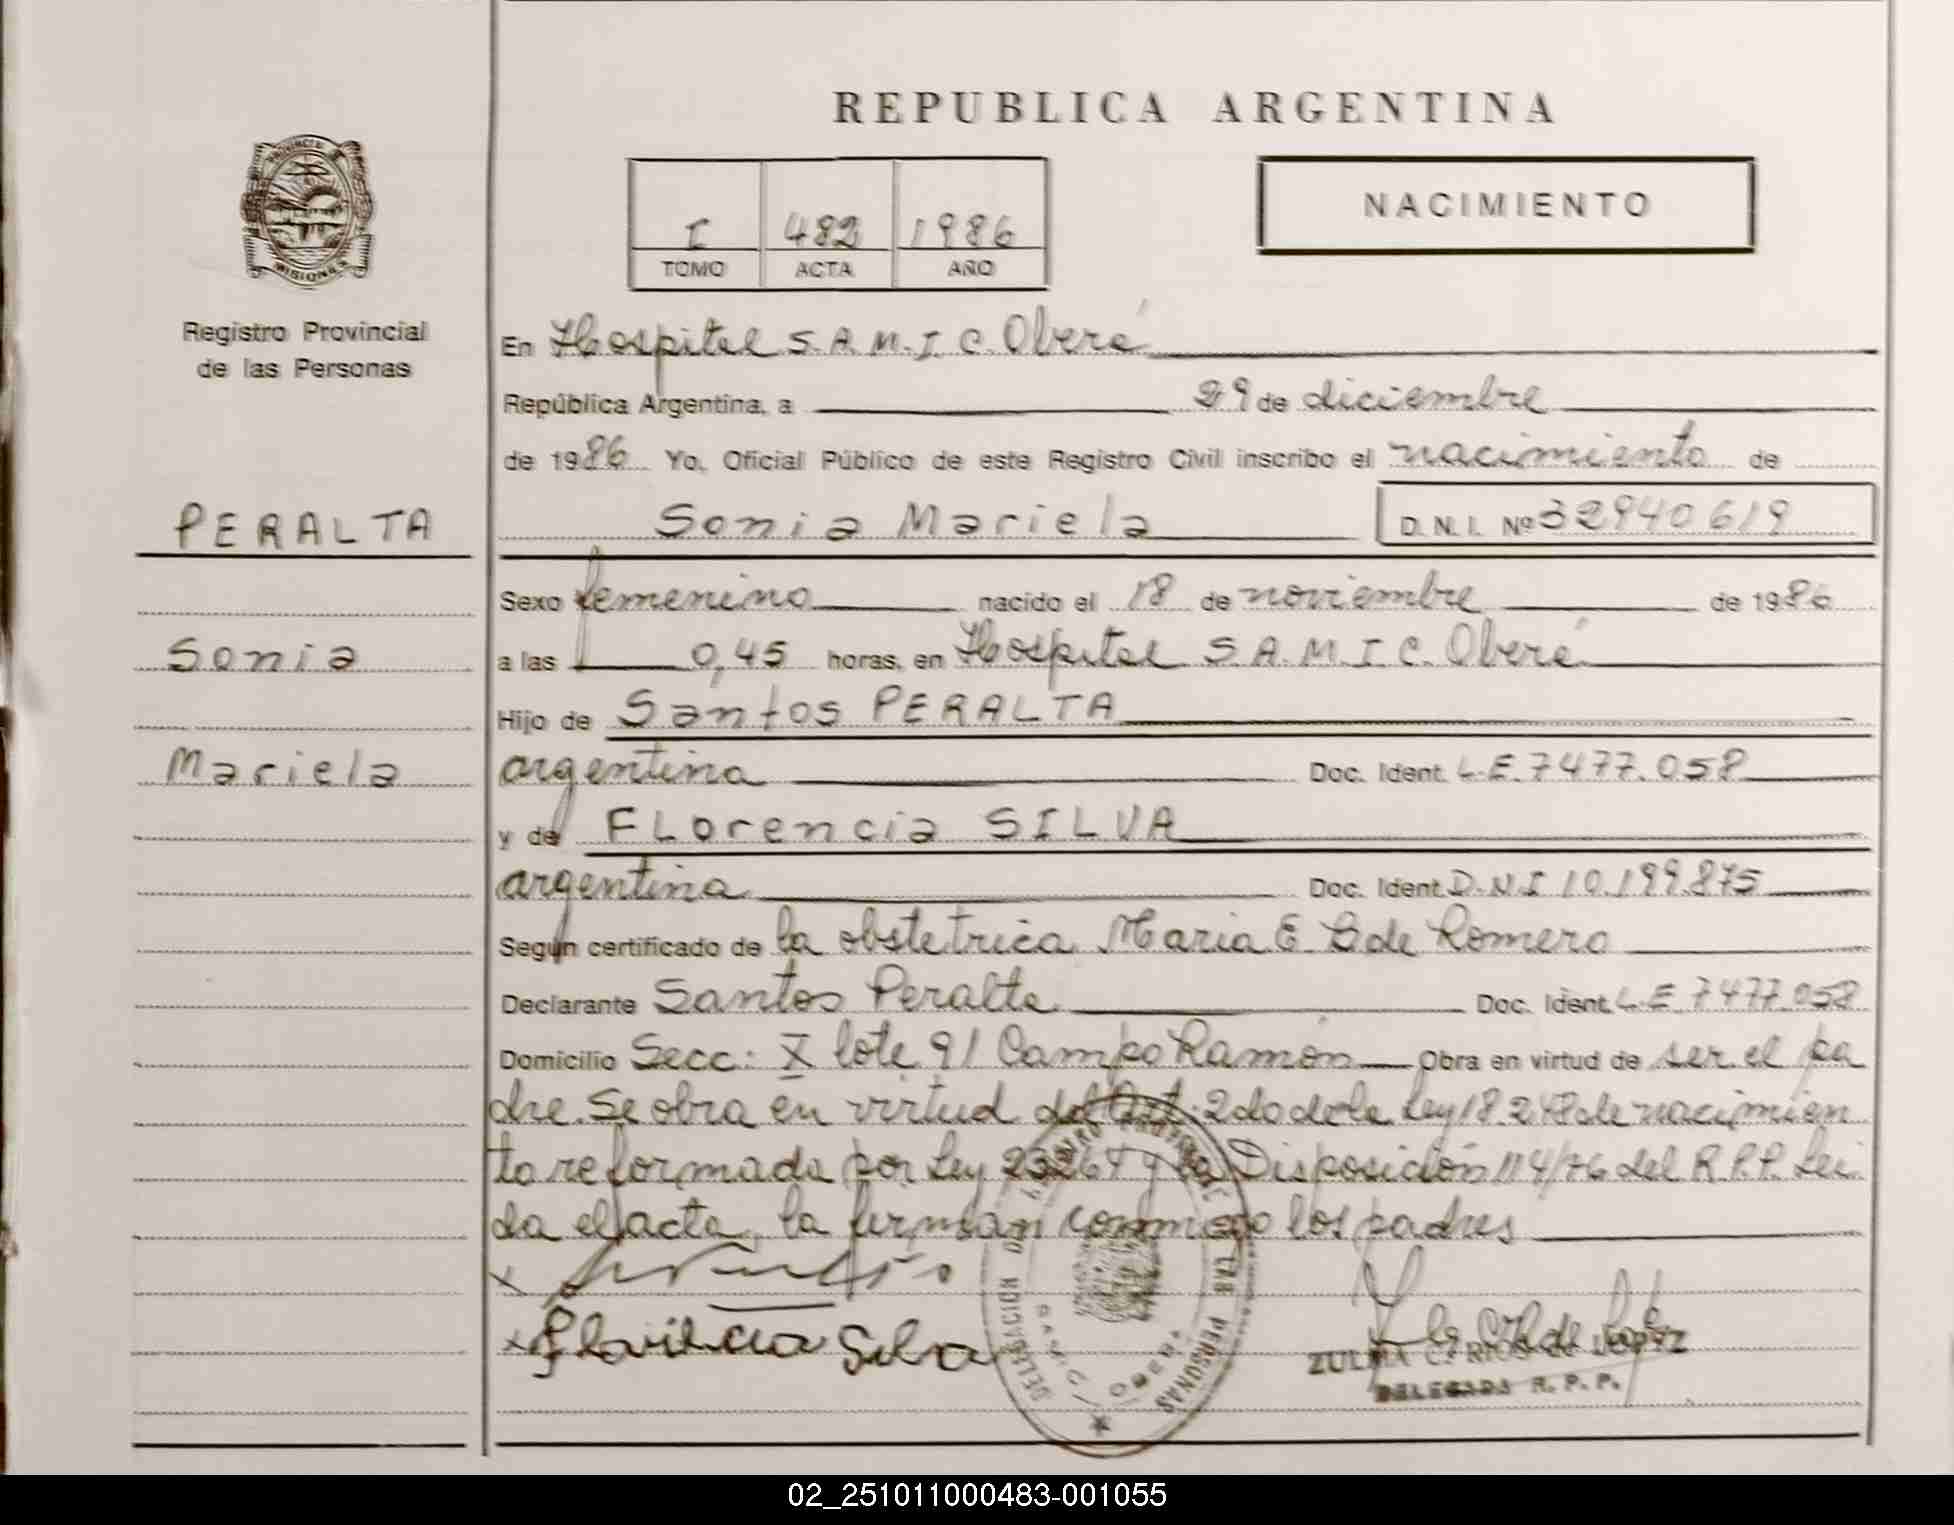 REPUBLICA ARGENTINA
PROVINCIA DE MISIONES
I 482 1986
TOMO ACTA AÑO
NACIMIENTO
Registro Provincial
de las Personas
PERALTA
Sonia
Mariela
En Hospital S.A.M.I.C. Oberá
República Argentina, a 29 de diciembre
de 1986 Yo, Oficial Público de este Registro Civil inscribo el nacimiento de
Sonia Mariela D.N.I. Nº 32940619
Sexo femenino nacido el 18 de noviembre de 1986
a las 0,45 horas, en Hospital S.A.M.I.C. Oberá
Hijo de Santos PERALTA
argentina Doc. Ident. L.E. 7477.058
y de FLorencia SILVA
argentina Doc. Ident. D.N.I 10.199.875
Según certificado de la obstetrica Maria E B de Romero
Declarante Santos Peralta Doc. Ident. L.E 7477.058
Domicilio Secc: X lote 91 Campo Ramón Obra en virtud de ser el pa
dre. Se obra en virtud del Art. 2do de la Ley 18.248 de nacimien
to reformada por Ley 23264 y la Disposición 114/76 del R.P.P. Lei
da el acta, la firman conmigo los padres
x
x Florencia Silva
DELEGACIÓN DEL REGISTRO PROVINCIAL DE LAS PERSONAS
ZULMA C. RIOS DE LOPEZ
DELEGADA R.P.P.
02_251011000483-001055